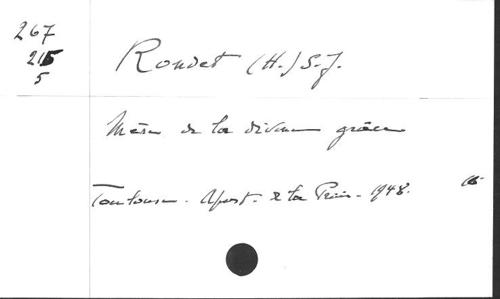 267
215
5
Rondet (H.) S.J.
Mère de la divine grâce
Toulouse. Apost. de la Prière. 1948. 16